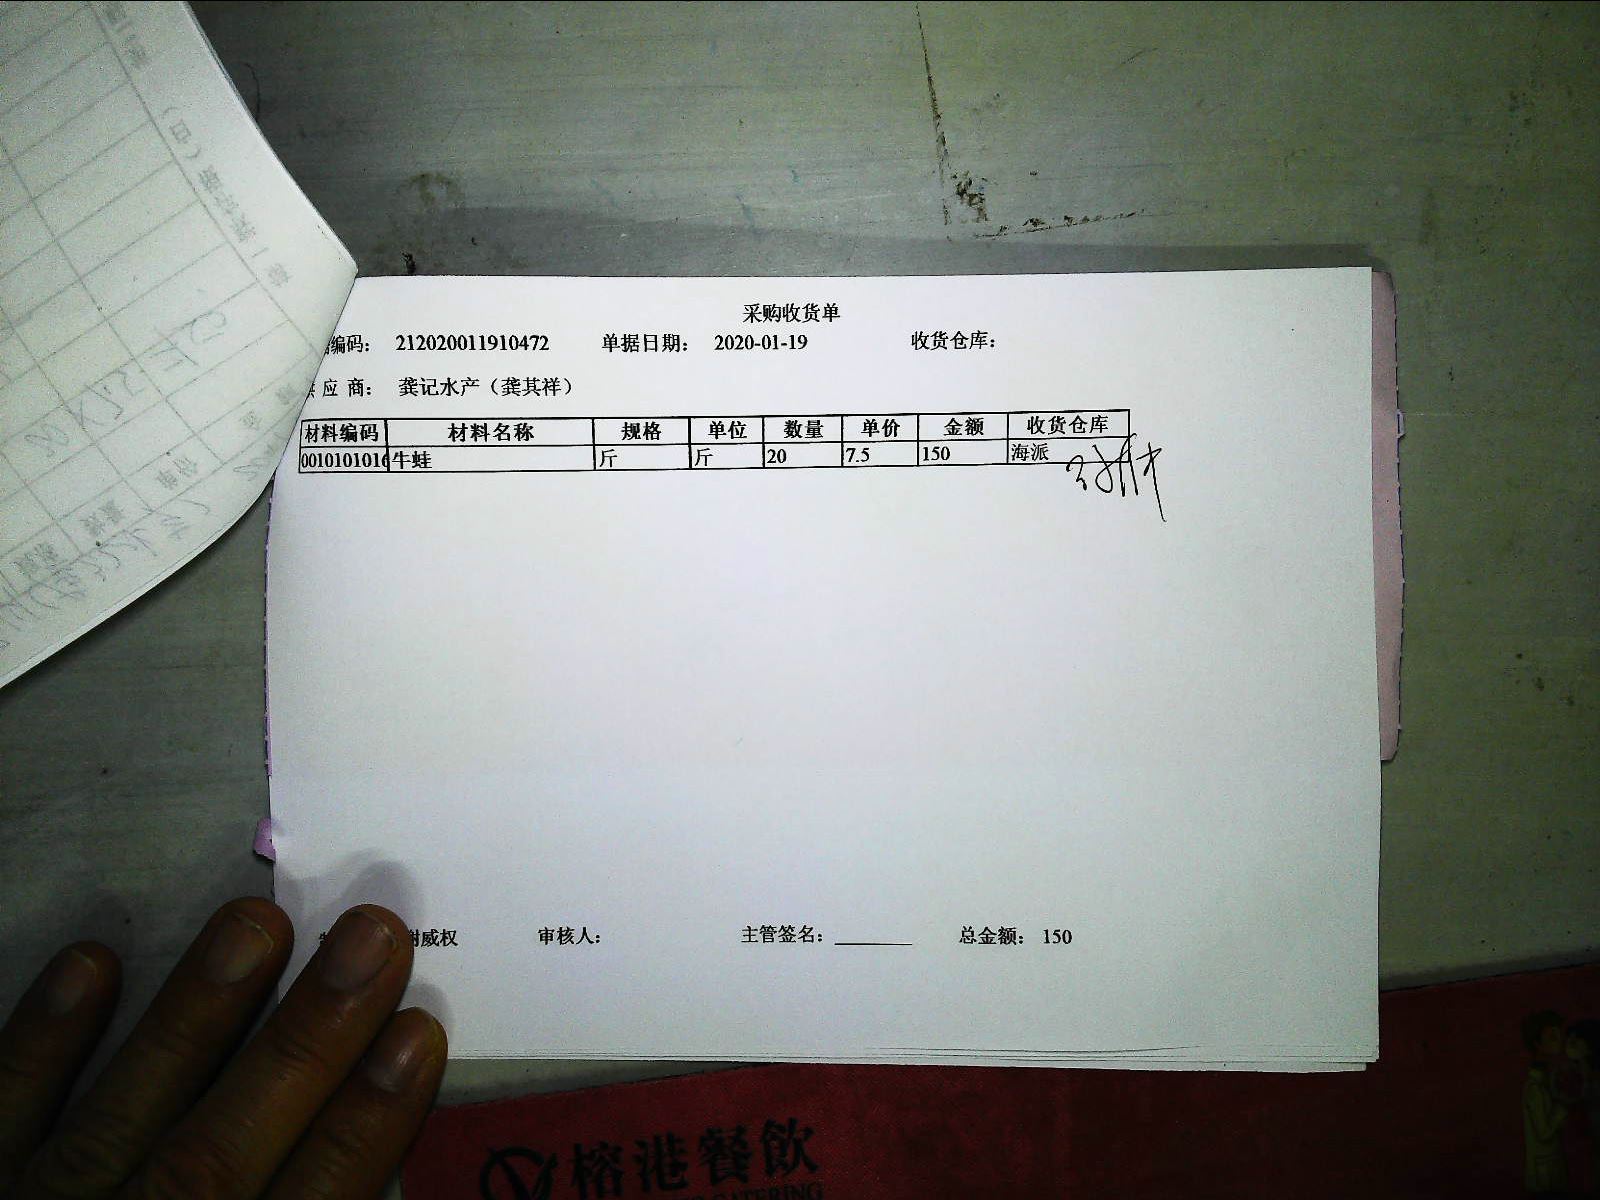 采购收货单
编码： 212020011910472 单据日期： 2020-01-19 收货仓库：
应 商： 龚记水产（龚其祥）
材料编码 材料名称 规格 单位 数量 单价 金额 收货仓库
0010101016 牛蛙 斤 斤 20 7.5 150 海派
谢威权 审核人： 主管签名： 总金额： 150
榕港餐飲
CATERING